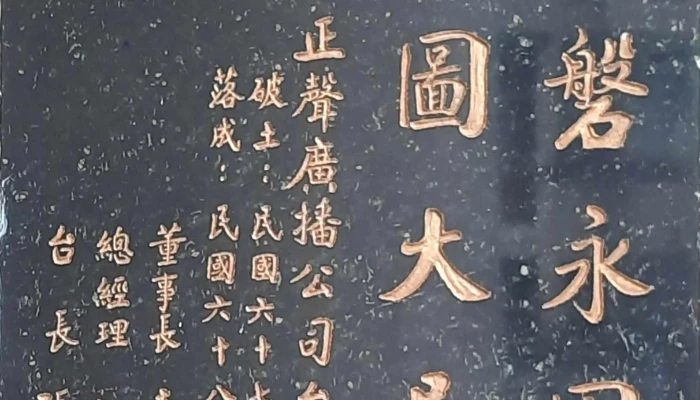 磐永
圖大
正聲廣播公司
破土：民國六十
落成：民國六十
董事長
總經理
台長